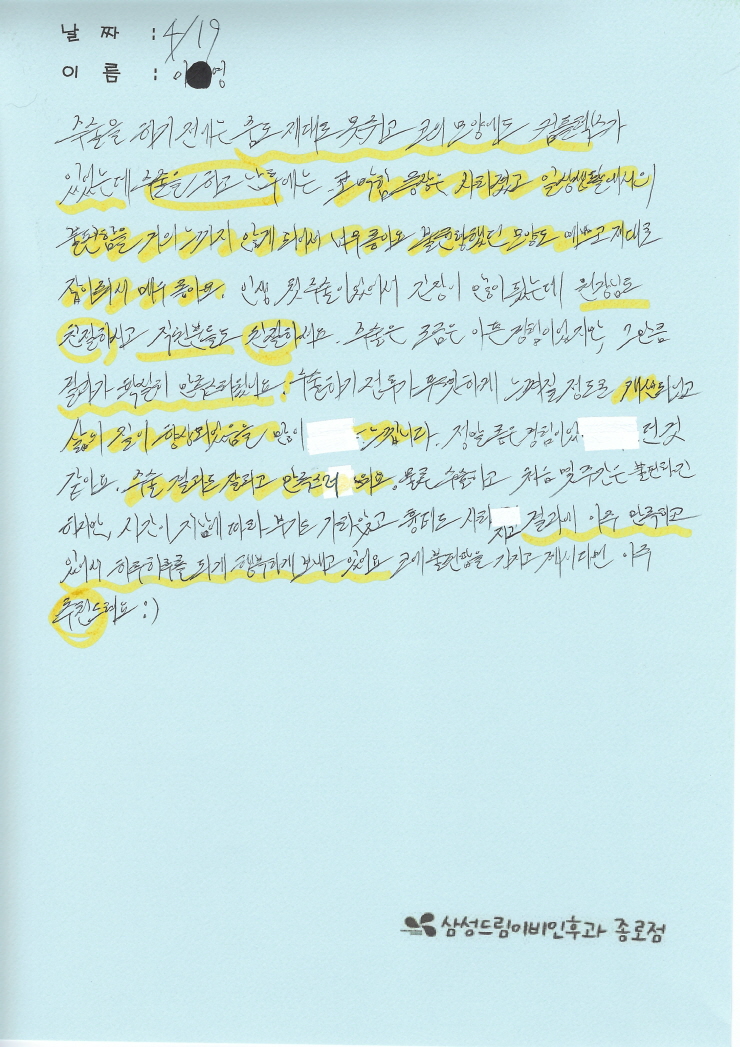 날 짜 : 4/19
이 름 : 이 영
수술을 하기 전에는 숨도 제대로 못쉬고 코의 모양에도 컴플렉스가
있었는데 수술을 하고 난 후에는 코 막힘 증상은 사라졌고 일상생활에서의
불편함을 거의 느끼지 않게 되어서 너무 좋아요 불편했던 모양도 예쁘고 제대로
잡아져서 매우 좋아요. 인생 첫 수술이었어서 긴장이 많이 됐는데 원장님도
친절하시고 직원분들도 친절하세요. 수술은 조금은 아픈 경험이었지만, 그만큼
결과가 확실히 만족스러웠네요! 수술하기 전후가 뚜렷하게 느껴질 정도로 개선되었고
삶의 질이 향상되었음을 많이 느낍니다. 정말 좋은 경험이었 던 것
같아요. 수술 결과도 잘되고 만족스러 워요. 물론 수술하고 처음 몇 주간은 불편하긴
하지만, 시간이 지남에 따라 부기도 가라앉고 통증도 사라 지고 결과에 아주 만족하고
있어서 하루하루를 되게 행복하게 보내고 있어요 코에 불편함을 가지고 계시다면 아주
추천드려요 :)
삼성드림이비인후과 종로점